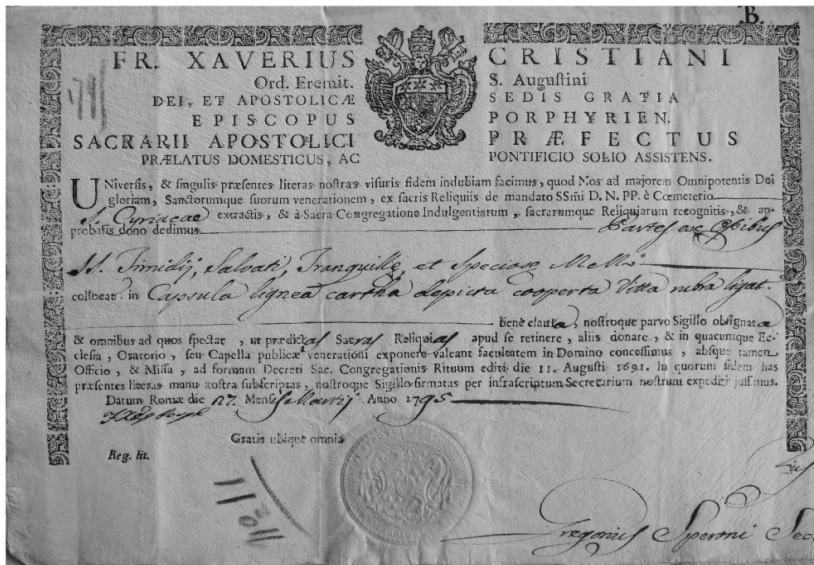 B.
1791
FR. XAVERIUS CRISTIANI
Ord. Eremit. S. Augustini
DEI, ET APOSTOLICÆ SEDIS GRATIA
EPISCOPUS PORPHYRIEN.
SACRARII APOSTOLICI PRÆFECTUS
PRÆLATUS DOMESTICUS, AC PONTIFICIO SOLIO ASSISTENS.
UNiversis, & singulis præsentes literas nostras visuris fidem indubiam facimus, quod Nos ad majorem Omnipotentis Dei
gloriam, Sanctorumque suorum venerationem, ex sacris Reliquiis de mandato SSmi D. N. PP. è Cœmeterio
S. Cyriacae extractis, & à Sacra Congregatione Indulgentiarum, sacrarumque Reliquiarum recognitis, & ap-
probatis dono dedimus Partes ex Ossibus
SS. Timidij, Salvati, Tranquille, et Speciose MMi
collocat. in Capsula lignea cartha depicta cooperta Vitta rubra ligat.
benè clausa, nostroque parvo Sigillo obsignatæ
& omnibus ad quos spectat, ut prædictas Sacras Reliquias apud se retinere, aliis donare, & in quacunque Ec-
clesia, Oratorio, seu Capella publicæ venerationi exponere valeant facultatem in Domino concessimus, absque tamen
Officio, & Missa, ad formam Decreti Sac. Congregationis Rituum editi die 11. Augusti 1691. In quorum fidem has
præsentes literas manu nostra subscriptas, nostroque Sigillo firmatas per infrascriptum Secretarium nostrum expediri jussimus.
Datum Romæ die 27. Mensis Martij Anno 1795
Gratis ubique omnia
Reg. lit.
Gregorius Speroni Sec